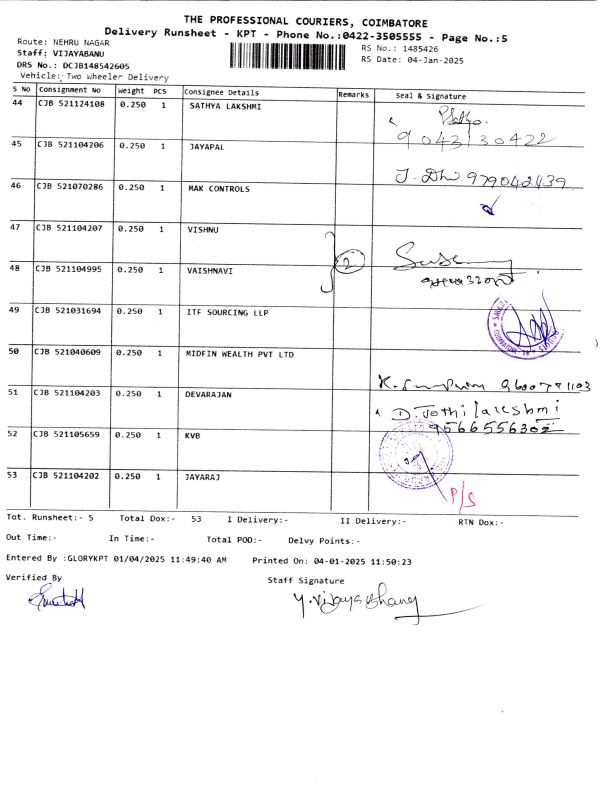 THE PROFESSIONAL COURIERS, COIMBATORE
Delivery Runsheet - KPT - Phone No.:0422-3505555 - Page No.:5
Route: NEHRU NAGAR
Staff: VIJAYABANU
DRS No.: DCJB148542605
Vehicle: Two Wheeler Delivery
RS No.: 1485426
RS Date: 04-Jan-2025
S No Consignment No Weight PCS Consignee Details Remarks Seal & Signature
44 CJB 521124108 0.250 1 SATHYA LAKSHMI
9043130422
45 CJB 521104206 0.250 1 JAYAPAL
979042439
46 CJB 521070286 0.250 1 MAK CONTROLS
47 CJB 521104207 0.250 1 VISHNU
2
48 CJB 521104995 0.250 1 VAISHNAVI
49 CJB 521031694 0.250 1 ITF SOURCING LLP
50 CJB 521040609 0.250 1 MIDFIN WEALTH PVT LTD
51 CJB 521104203 0.250 1 DEVARAJAN
D. Jothi lakshmi
9566556302
52 CJB 521105659 0.250 1 KVB
53 CJB 521104202 0.250 1 JAYARAJ
P/S
Tot. Runsheet:- 5 Total Dox:- 53 I Delivery:- II Delivery:- RTN Dox:-
Out Time:- In Time:- Total POD:- Delvy Points:-
Entered By :GLORYKPT 01/04/2025 11:49:40 AM Printed On: 04-01-2025 11:50:23
Verified By Staff Signature